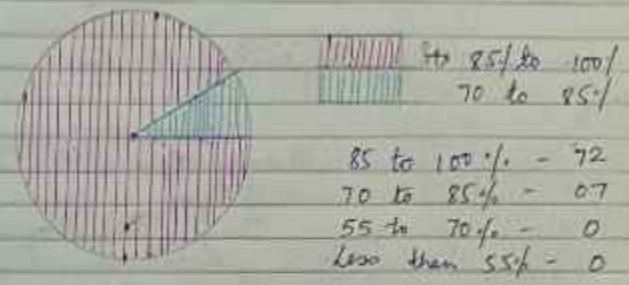 85% to 100%
70 to 85%
85 to 100% - 72
70 to 85% - 07
55 to 70% - 0
Less then 55% - 0